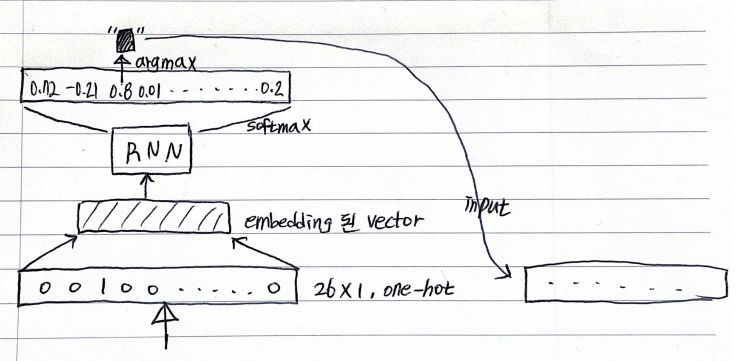 "■"
argmax
0.12 -0.21 0.8 0.01 ........ 0.2
softmax
RNN
input
embedding 된 vector
0 0 1 0 0 ...... 0
26 x 1, one-hot